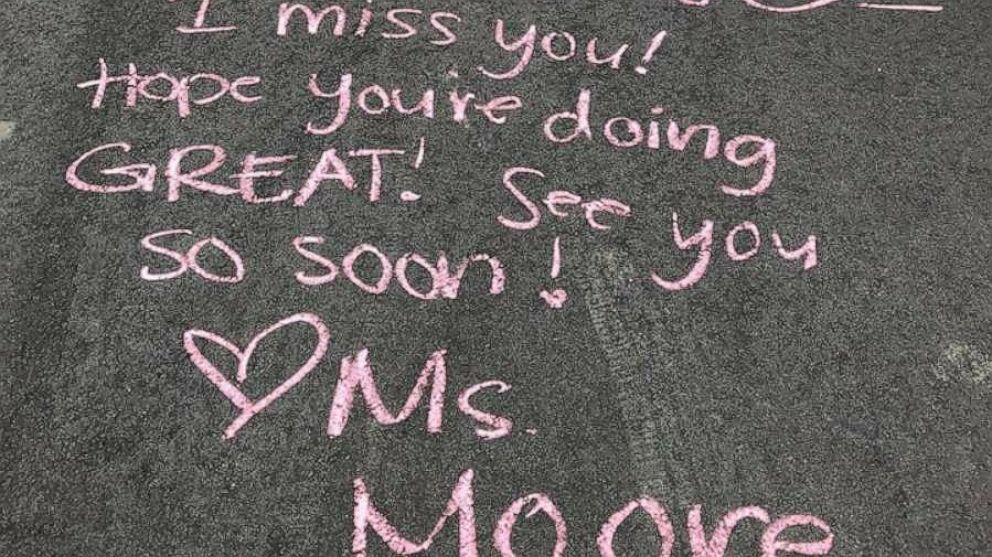 I miss you!
Hope you're doing
GREAT! See you
so soon!
♡ Ms.
Moore